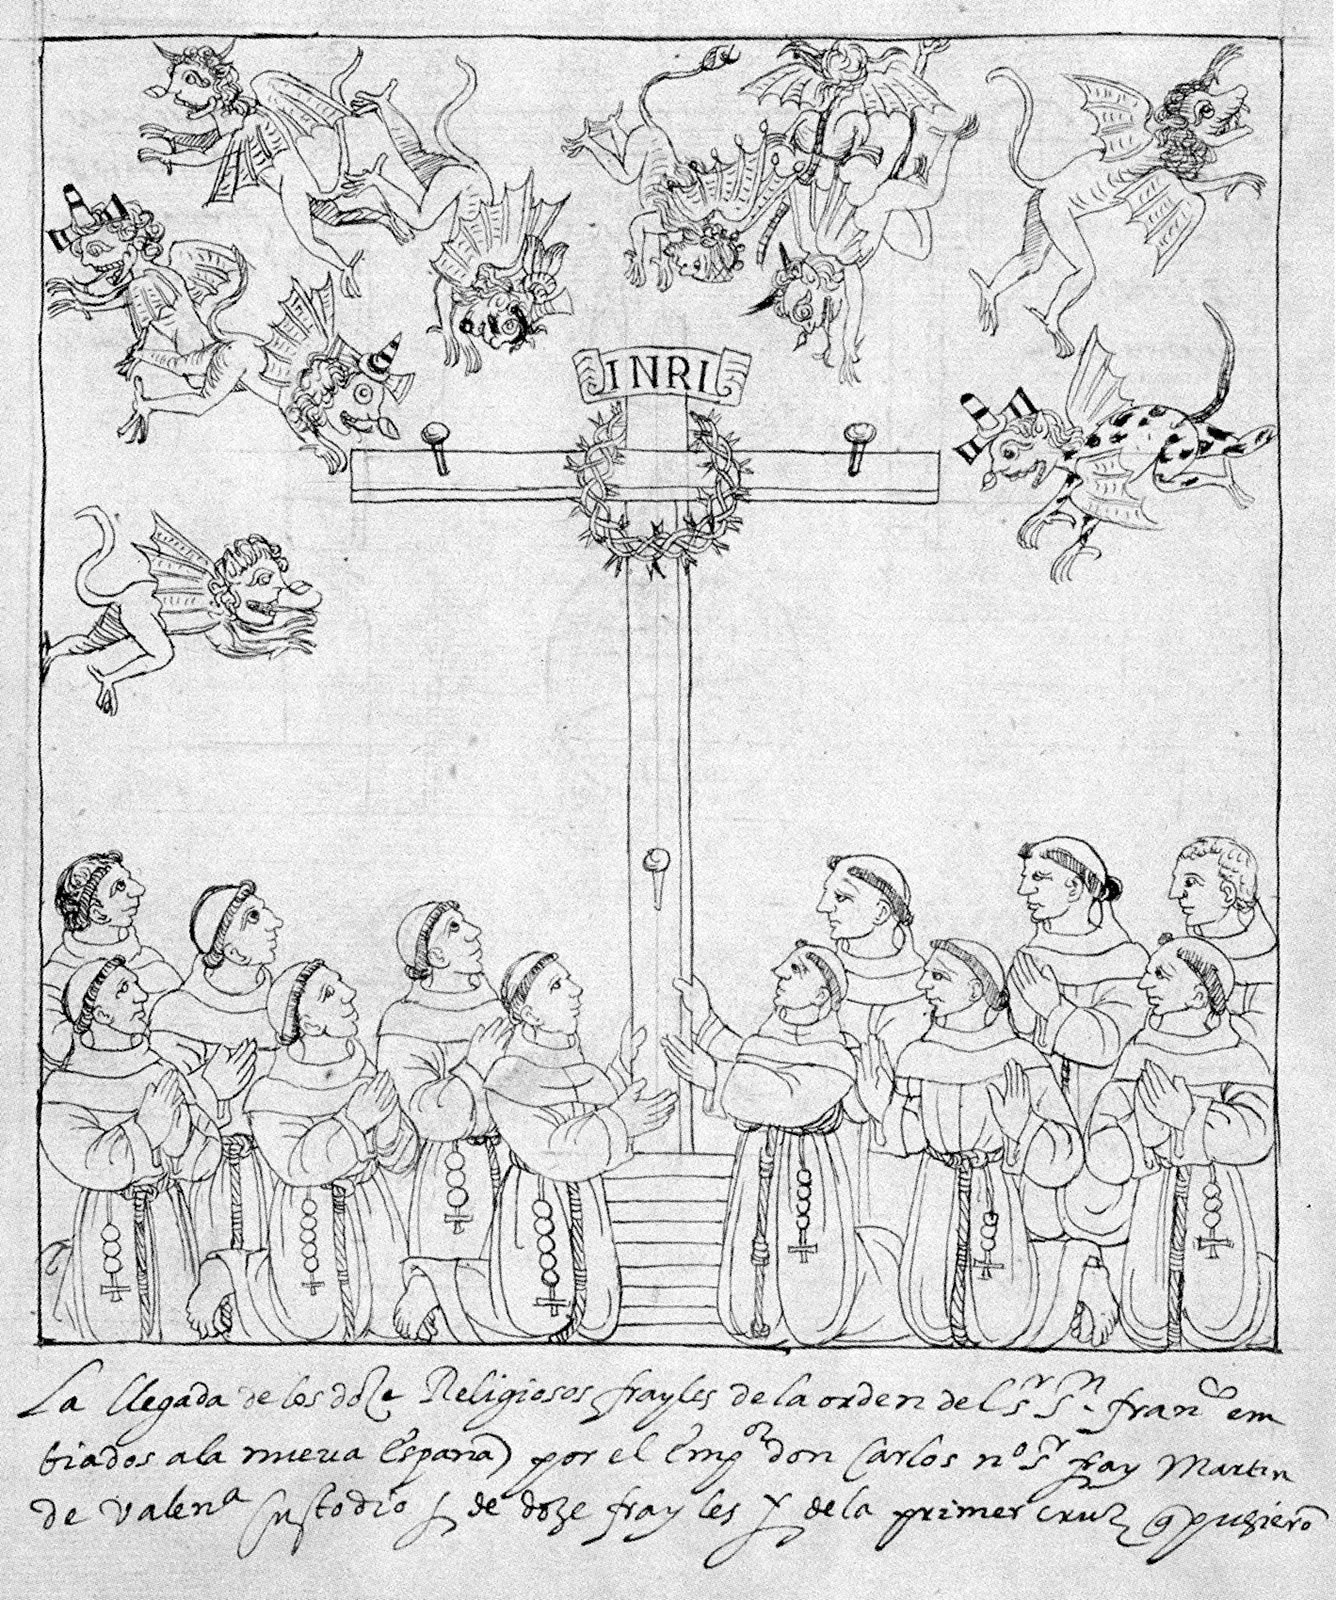 INRI
La llegada de los doze Religiosos frayles de la orden del sr Sn. franco em
biados a la nueua España por el Empor don Carlos no sr fray Martin
de valena Custodio de doze frayles y de la primer cruz q pusiero